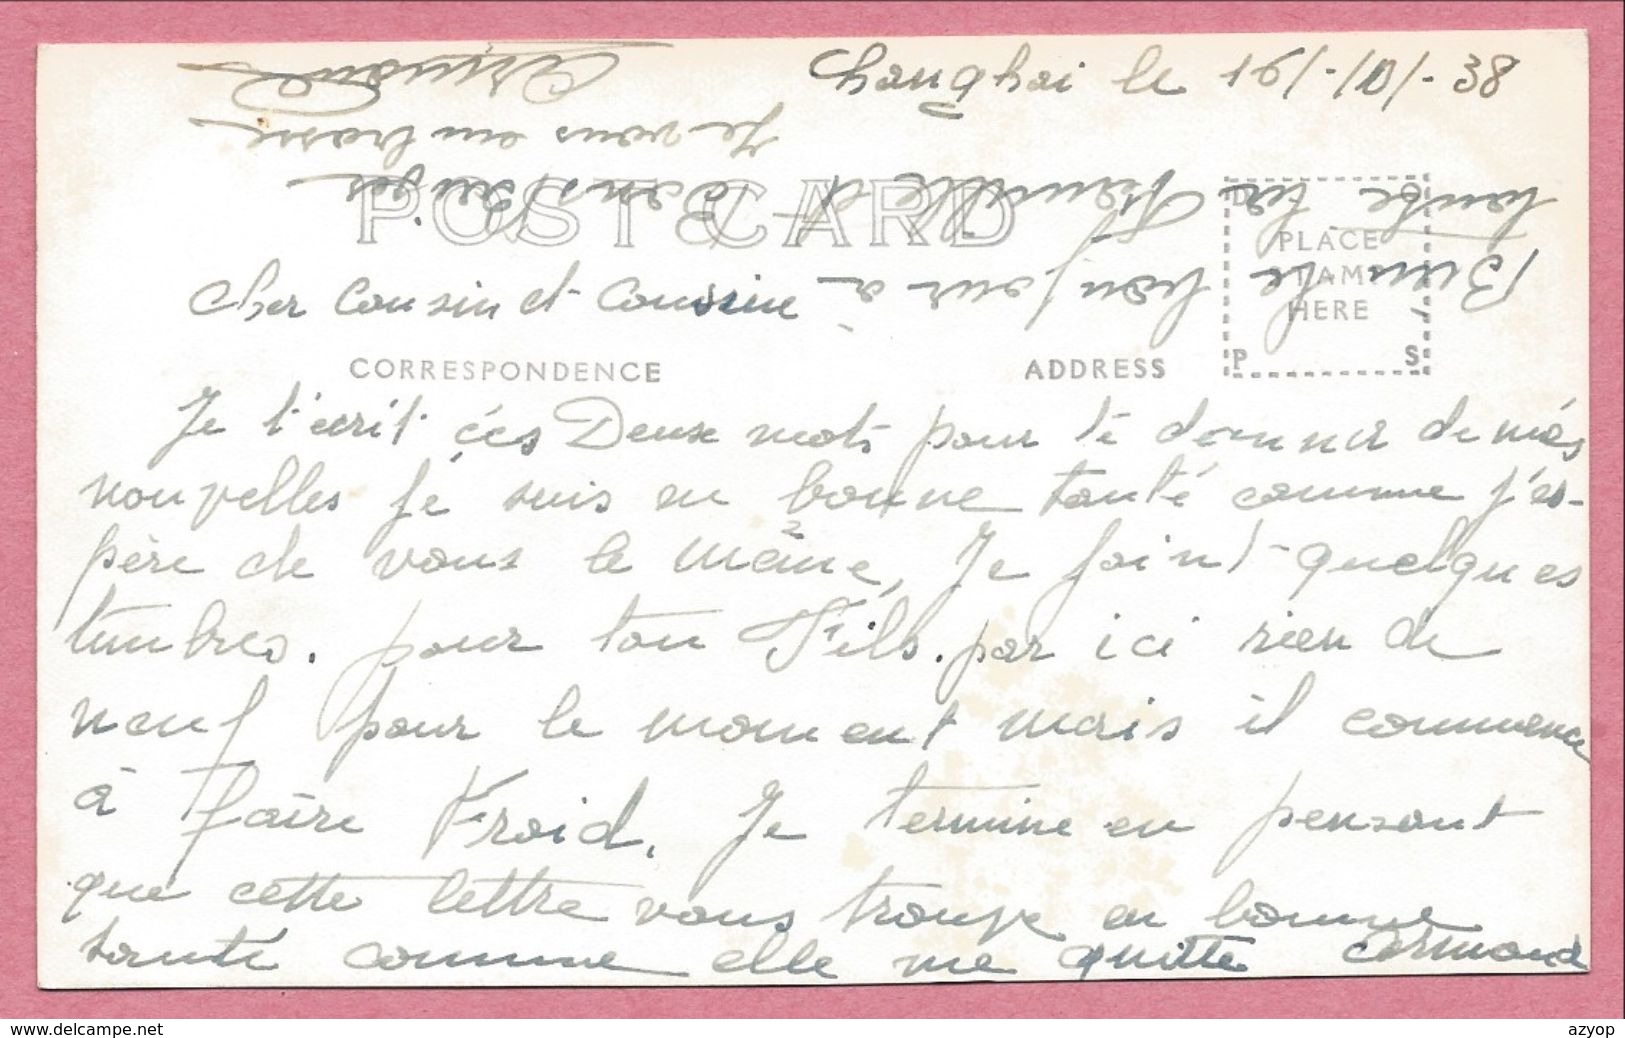 Shanghai le 16/-/10/-38
POST CARD
Cher Cousin et Coussine
PLACE
STAMP
HERE
CORRESPONDENCE
ADDRESS
Je t'écrit cés Deux mots pour té donner de més
nouvelles jé suis en bonne santé comme j'es-
père de vous le même, Je joint quelques
timbres. pour ton Fils. par ici rien de
neuf pour le moment mais il commence
à faire Froid. Je termine en pensant
que cette lettre vous trouve en bonne
santé comme elle me quitte Armand
le bonjour à
toute la Famille et
Je vous embrasse
Armand
www.delcampe.net
azyop